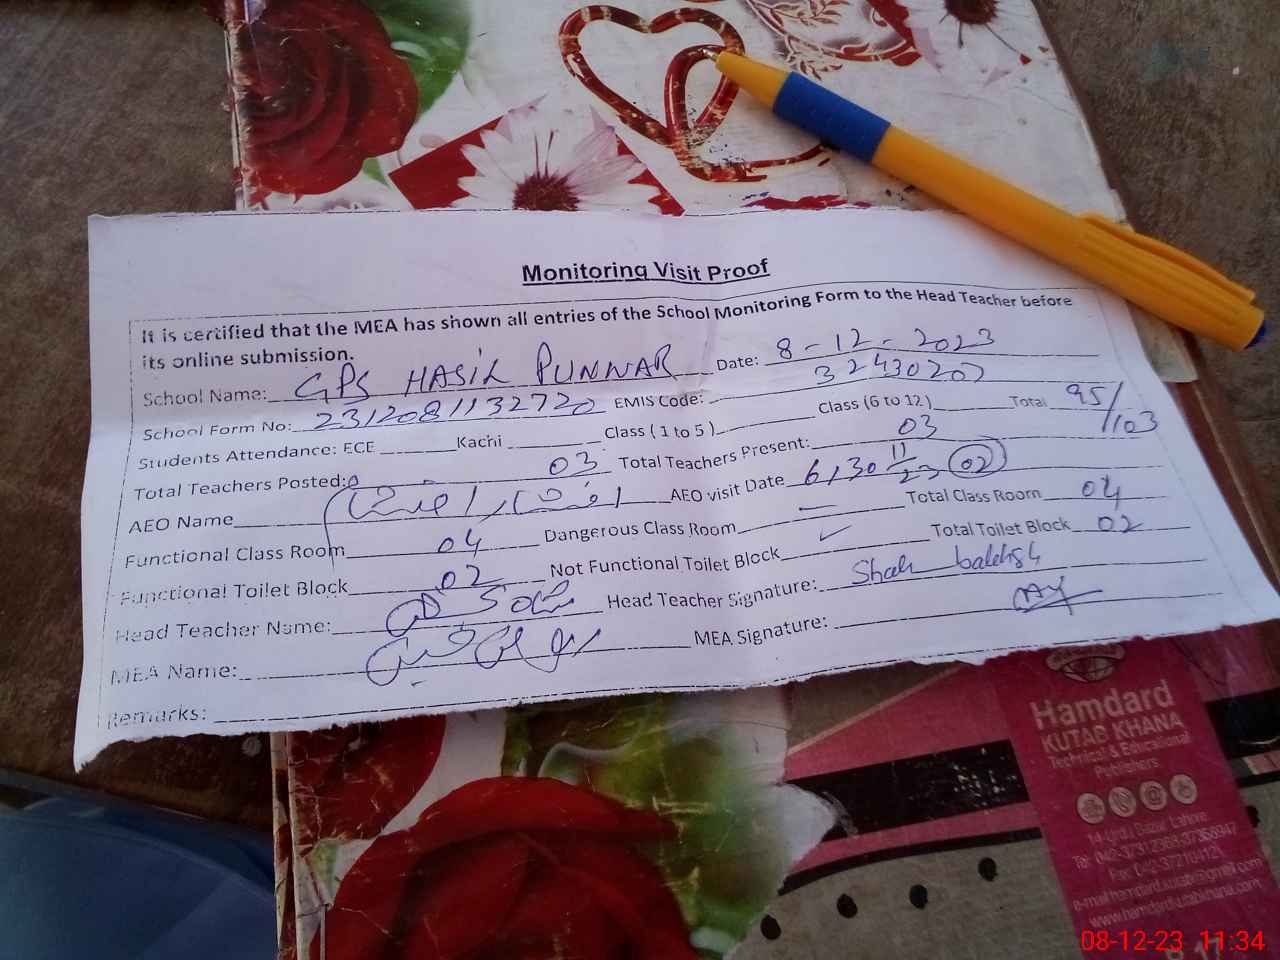 Monitoring Visit Proof
It is certified that the MEA has shown all entries of the School Monitoring Form to the Head Teacher before
its online submission.
School Name: GPS HASIL PUNWAR Date: 8-12-2023
School Form No: 231208113272 EMIS Code: 32430207
Students Attendance: ECE Kachi Class (1 to 5) Class (6 to 12) Total 95/103
Total Teachers Posted: 03 Total Teachers Present: 03
AEO Name AEO visit Date 6,30 11/23 02
Functional Class Room 04 Dangerous Class Room — Total Class Room 04
Functional Toilet Block 02 Not Functional Toilet Block Total Toilet Block 02
Head Teacher Name: Head Teacher Signature: Shah bakhsh
MEA Name: MEA Signature:
Remarks:
Hamdard
KUTAB KHANA
Technical & Educational
Publishers
14 Urdu Bazar, Lahore
Fax: 042-37210412
08-12-23 11:34